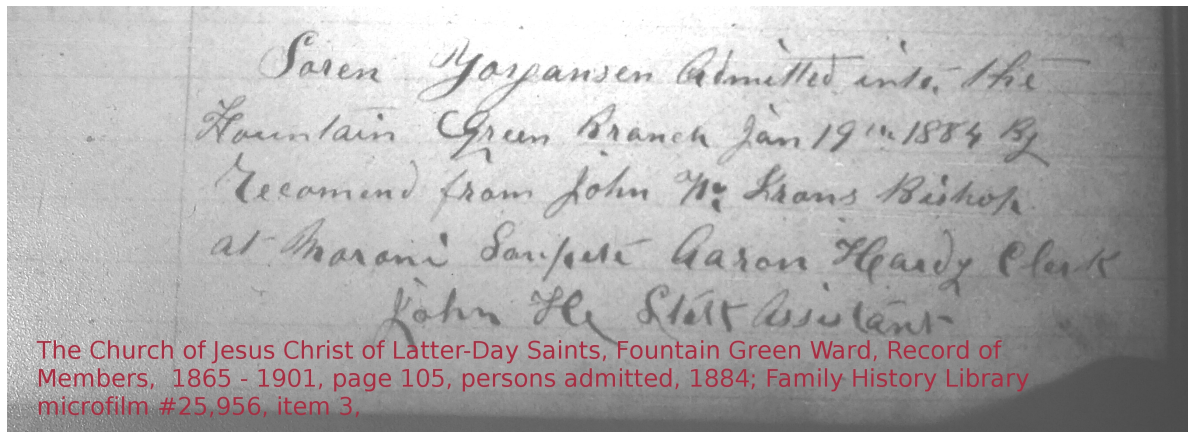 Soren Yorgansen Admitted into the
Fountain Green Branch Jan 19th 1884 By
Recomend from John W. Irons Bishop
at Moroni Sanpete Aaron Hardy Clerk
John He Assistant
The Church of Jesus Christ of Latter-Day Saints, Fountain Green Ward, Record of
Members, 1865 - 1901, page 105, persons admitted, 1884; Family History Library
microfilm #25,956, item 3,